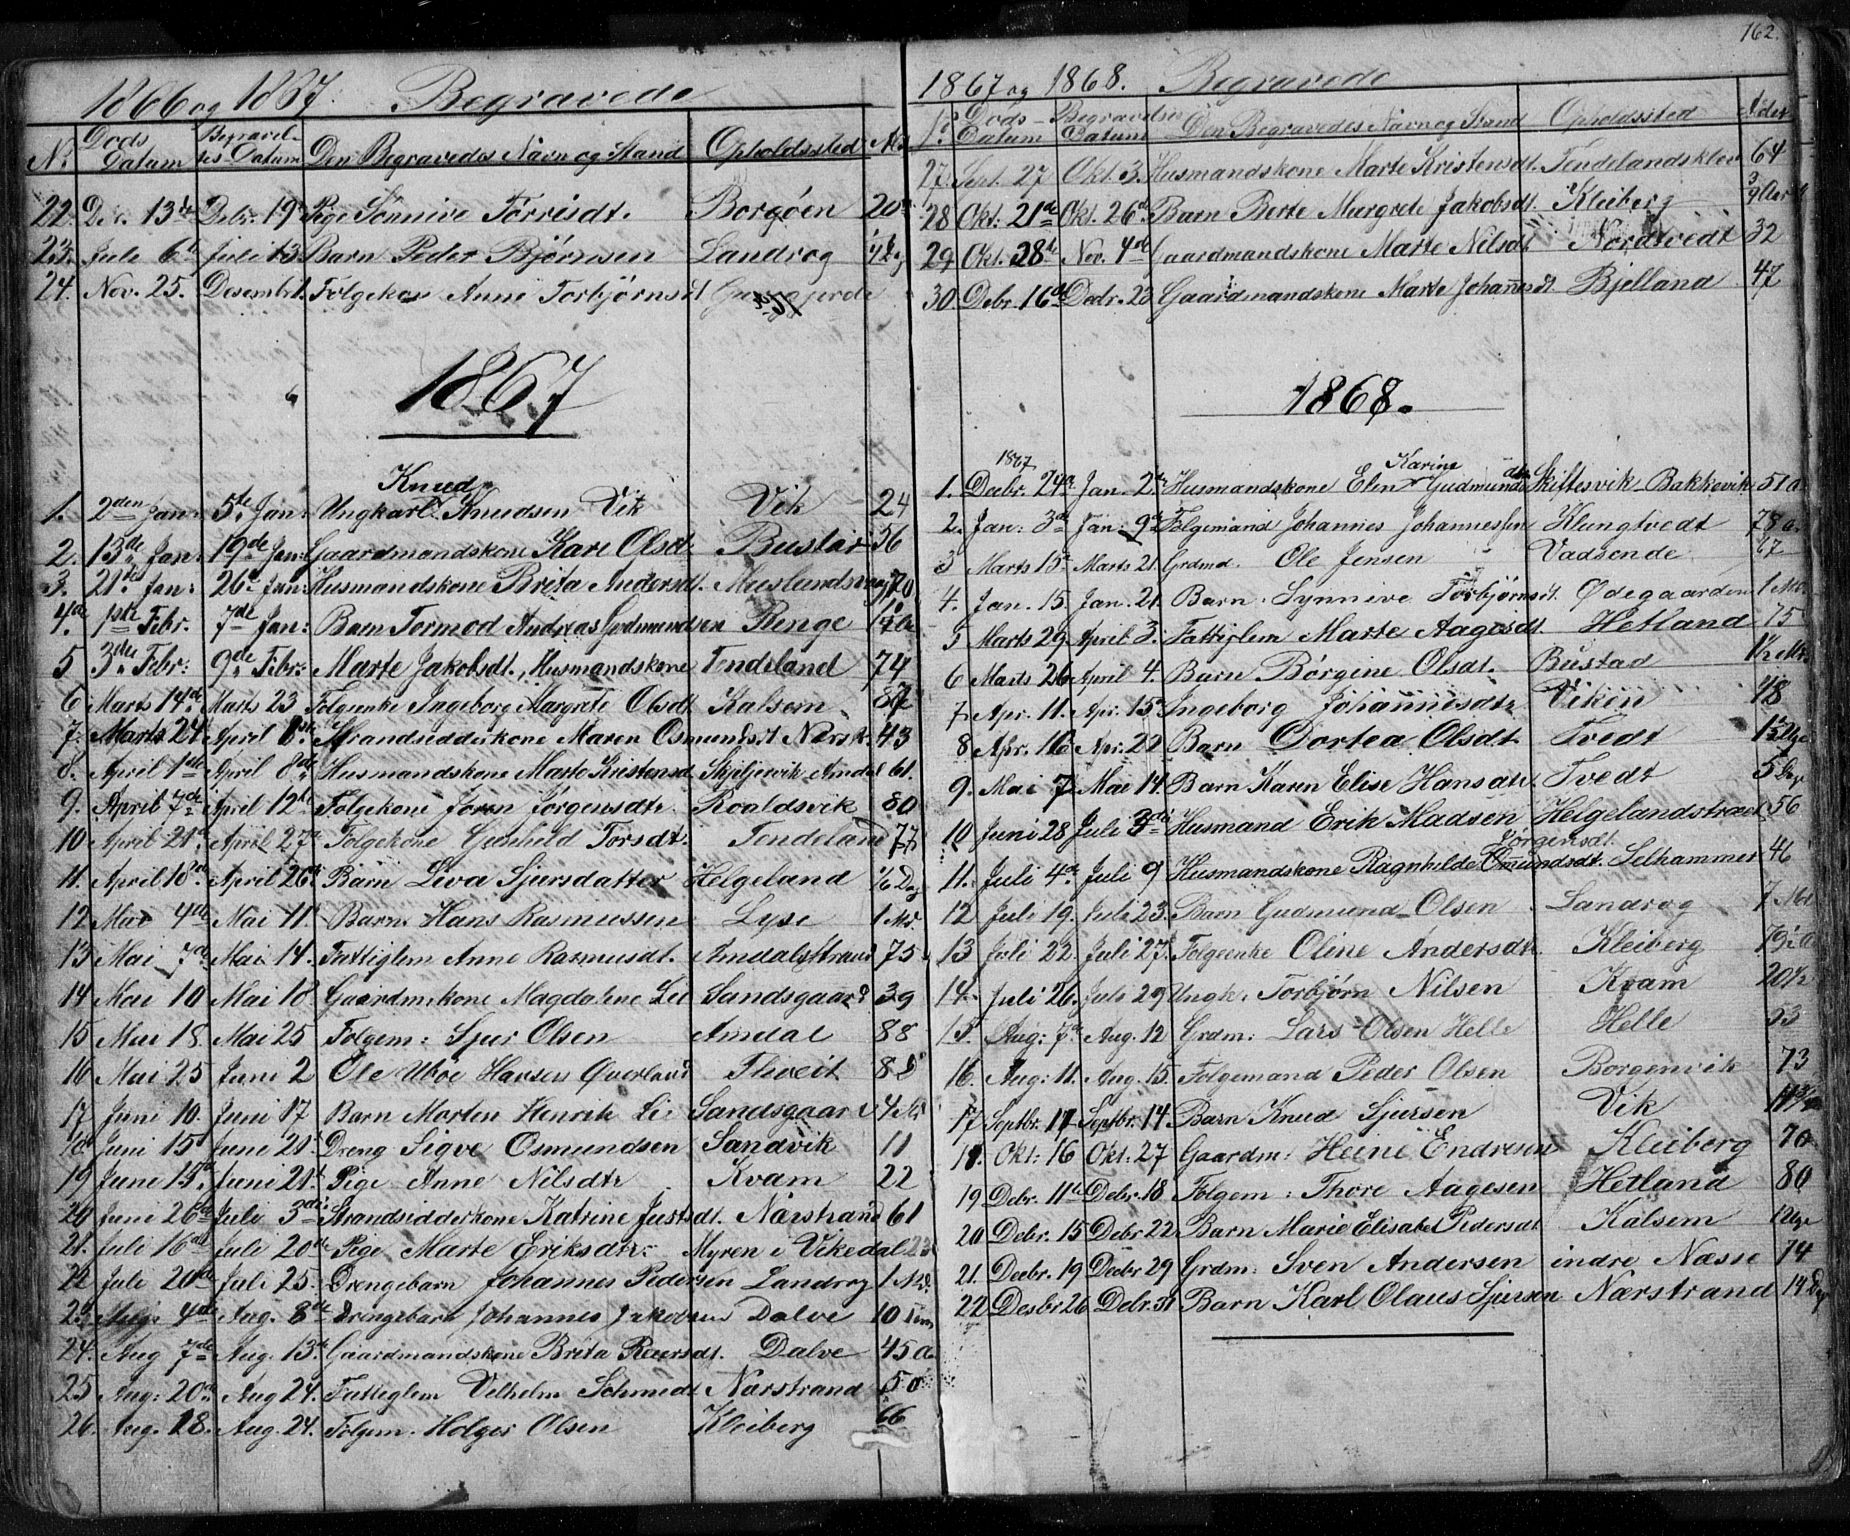 1866 og 1867. Begravede
N. Døds Datum Begravelses-Datum Den Begravedes Navn og Stand Opholdssted
22. Debr. 19 Pige Sønnive Tørrisdt. Borgøen 20
23. Juli 6 Juli 13 Barn Peder Bjørnsen Landrog
24. Nov. 25. Desemb. 1. Folgekone Anne Torbjørnsdt
1867
Knud
1. 2den Jan: 5te Jan: Ungkarl Knudsen Vik Vik 24
2. 15de Jan: 19de Jan: Gaardmandskone Kari Olsdt. 56
3. 21de Jan: 26 Jan: Husmandskone Brita Andersdt. 70
4. 1ste Febr. 7de Jan: Barn Tormod Andreas Gudmundsen Renge
5 3die Febr: 9de Febr: Marte Jakobsdt., Husmandskone Tendeland 74
6 Marts 14de Marts 23 Folgeenke Ingeborg Margrete Olsdt Kalsem 87
7. Marts 24 April 8de Strandsidderkone Maren Osmundsdt Nærst. 43
8. April 1de April 8de Husmandskone Marte Kristensd. Amdal 61.
9. April 7de April 12te Folgekone Joren Jørgensdtr. Roaldsvik 80
10 April 21de April 27de Folgekone Gunhild Torsdt. Tendeland 77
11. April 18de April 26de Barn Liva Sjursdatter Helgeland 6 Dag
12 Mai 4de Mai 11. Barn Hans Rasmussen Lyse 1 Md.
13 Mai 7de Mai 14. Fattiglem Anne Rasmusdt. Amdalsstrand 75
14 Mai 10 Mai 18. Gaardm.kone Magdalene Lie Sandsgaard 39
15 Mai 18 Mai 25 Folgem: Sjur Olsen Amdal 88
16 Mai 25 Juni 2 Ole Hansen Qverland 82
17. Juni 10. Juni 17 Barn Morten Henrik Lie Sandsgaard 4
18 Juni 15 Juni 21 Dreng Sigve Osmundsen Sandvik 11
19 Juni 15 Juni 21. Pige Anne Nilsdtr. Kvam 22
20 Juni 26de Juli 3die Strandsidderkone Katrine Justsdt. Nærstrand 61
21. Juli 16de Juli 20de Pige Marte Eriksdtr. Myren i Vikedal 23
22 Juli 20de Juli 25. Drengebarn Johannes Pedersen Landrog 1 Md.
23 Aug. 4de Aug. 8de Drengebarn Johannes Jakobsen Dalve 10
24. Aug 7de Aug. 13de Gaardmandskone Brita Dalve 45
25 Aug: 20de Aug 24. Fattiglem Vilhelm Schmidt Nærstrand 50
26. Aug. 18. Aug. 24. Folgem. Holger Olsen Kleiberg 66
162.
1867 og 1868. Begravede
No. Døds-Datum Begravelses Datum Den Begravedes Navn og Stand Opholdssted Alder
27. Sept. 27 Okt. 3. Husmandskone Marte Kristensdt. Tendelandsklev 64
28 Okt. 21de Okt. 26de Barn Berte Margrete Jakobsdt. Kleiberg
29 Okt. 28de Nov. 4de Gaardmandskone Marte Nilsdt Nordtvedt 32
30. Debr. 16de Debr. 23 Gaardmandskone Marte Johannesdt Bjelland 47
1868.
1867 Karine
1. Decbr. 24de Jan. 2de Husmandskone Elen Gudmundsdtr Skiftesvik-Bakkevik 51 a
2. Jan: 3de Jan: 9de Folgemand Johannes Johannessen Klungtvedt 78 a.
3 Marts 15 Marts 21. Grdmd. Ole Jensen Vadsende 67
4. Jan. 15. Jan. 21. Barn Synnive Torbjørnsdt. Ødegaarden 1 Md.
5 Marts 29. April 3. Fattiglem Marte Aagesdt. Hetland 75
6 Marts 26 April 4. Barn Børgine Olsdt. Bustad 1½ Md.
7 Apr. 11. Apr. 15 Ingeborg Johannesdtr. Viken 18
8 Apr. 16 Apr. 22 Barn Dortea Olsdt Tvedt
9. Mai 7 Mai 14. Barn Karen Elise Hansdtr. Tvedt 5 Dage
10 Juni 28 Juli 3die Husmand Erik Madsen Helgelandstræet 56
Jørgensdt.
11. Juli 4de Juli 9 Husmandskone Ragnhilde Omundsdt. Selhammer 46
12 Juli 19. Juli 23. Barn Gudmund Olsen Landrog 7 Md
13 Juli 22 Juli 27. Folgeenke Oline Andersdtr. Kleiberg 79½
14. Juli 26. Juli 29 Ungk: Torbjørn Nilsen Kvam 20½
15. Aug: 7de Aug. 12 Grdm: Lars Olsen Helle Helle 53
16. Aug: 11. Aug. 15. Folgemand Peder Olsen Borgenvik 73
17 Septbr. 11 Septbr. 14 Barn Knud Sjursen Vik
18. Okt: 16 Okt. 27 Gaardm: Heine Endresen Kleiberg 70
19 Debr. 11te Debr. 18 Folgem: Thore Aagesen Hetland 80
20 Debr. 15 Debr 22 Barn Marie Elisabet Pedersdt Kalsem
21. Decbr. 19 Decbr 29 Grdm: Sven Andersen indre Næsse 74
22 Desbr 26 Debr. 31 Barn Karl Olaus Sjursen Nærstrand 14 Dage